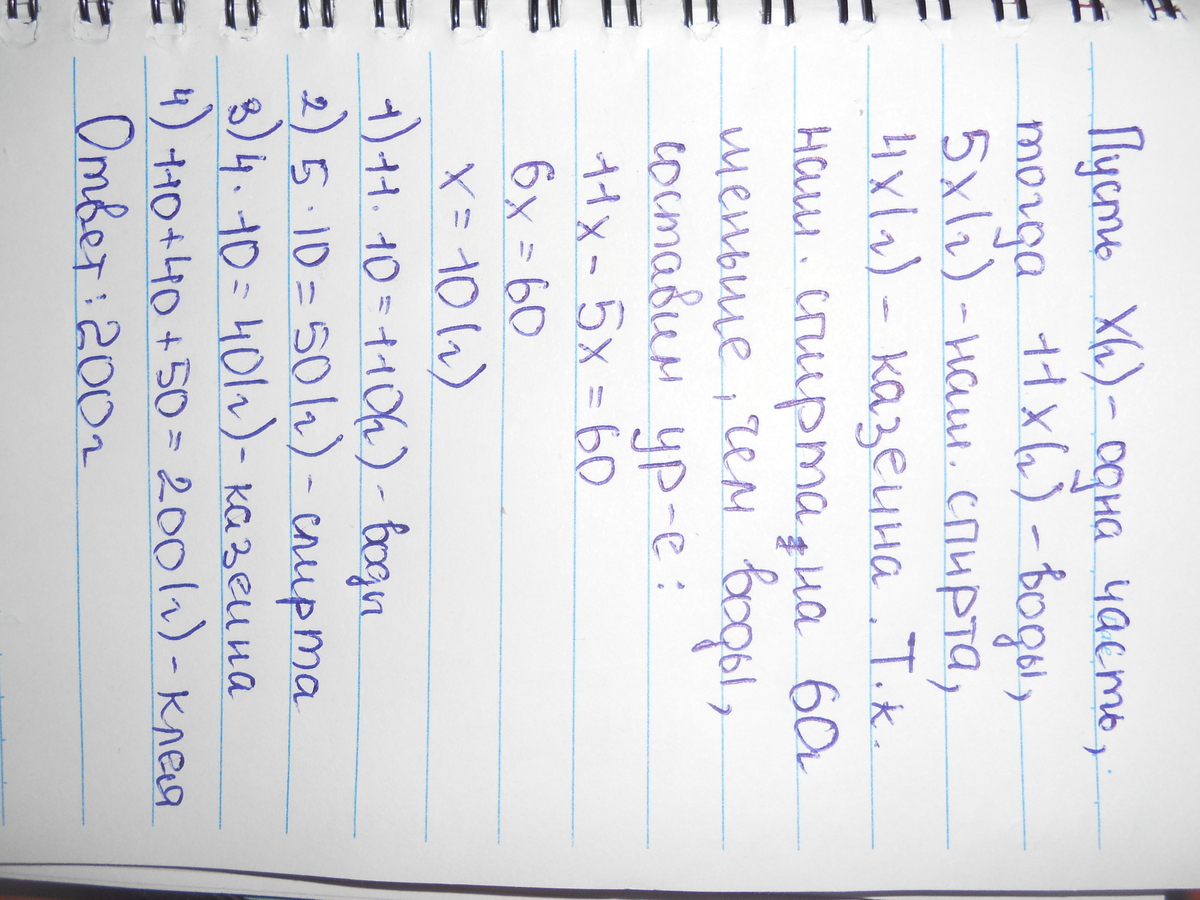 Пусть X(г) - одна часть,
тогда 11X(г) - воды,
5X(г) - наш. спирта,
4X(г) - казеина. Т.к.
наш. спирта на 60г
меньше, чем воды,
составим ур-е:
11x - 5x = 60
6x = 60
x = 10(г)
1) 11·10=110(г) - воды
2) 5·10=50(г) - спирта
3) 4·10=40(г) - казеина
4) 110+40+50=200(г) - клея
Ответ: 200г